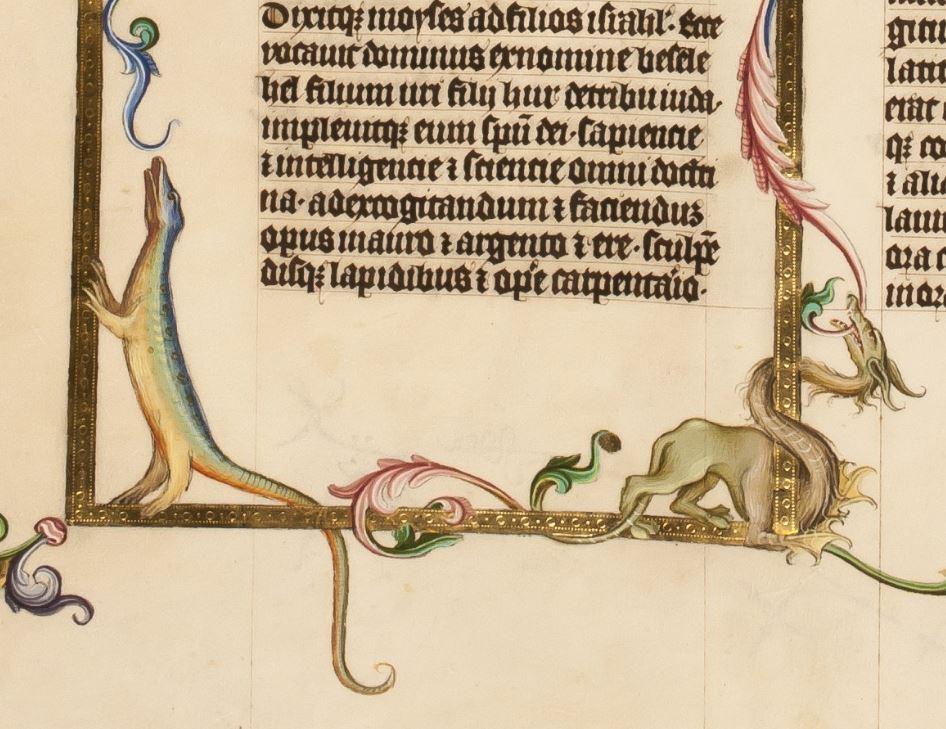 Dixitqꝫ moyses ad filios israhł· Ecce
vocavit dominus ex nomine besele
hel filium uri filij hur de tribu iuda·
implevitqꝫ eum spū dei· sapiencie
⁊ intelligencie ⁊ sciencie omni doctri
na· ad excogitandum ⁊ faciendūꝫ
opus in auro ⁊ argento ⁊ ere· sculpē
disqꝫ lapidibus ⁊ ope carpentaio·
qꝫ co
⁊ alii
ora c